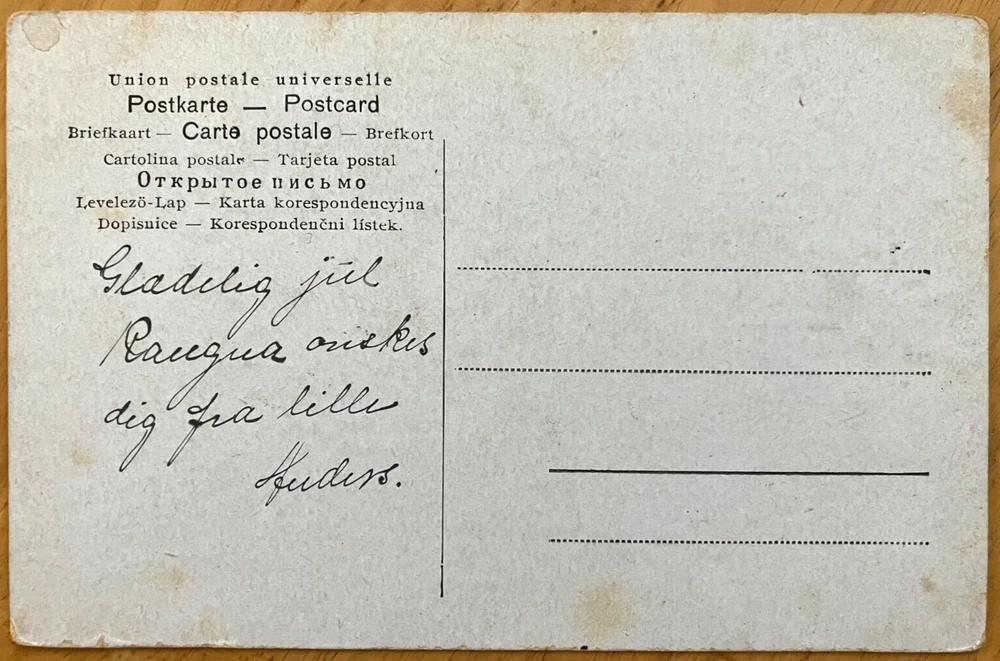 Union postale universelle
Postkarte — Postcard
Briefkaart — Carte postale — Brefkort
Cartolina postale — Tarjeta postal
Открытое письмо
Levelezö-Lap — Karta korespondencyjna
Dopisnice — Korespondenčni lístek.
Glædelig jul
Raugna ønskes
dig fra lille
Anders.